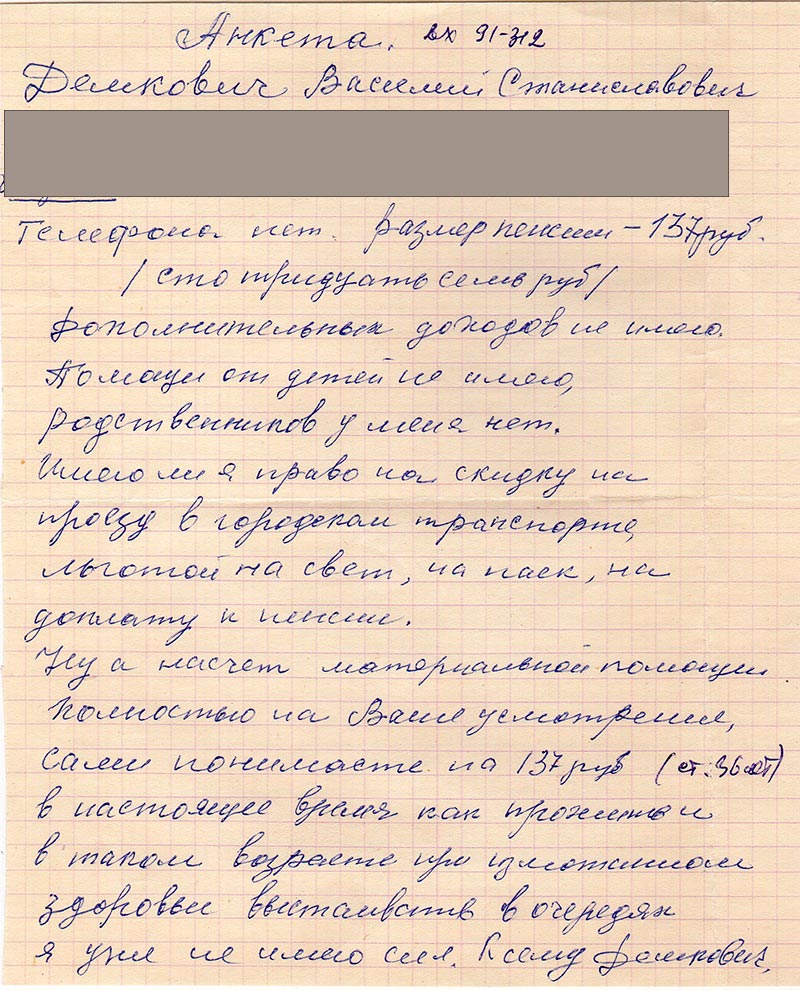 Анкета. вх 91-312
Демкович Василий Станиславович
Телефона нет. размер пенсии – 137 руб.
/сто тридцать семь руб/
Дополнительных доходов не имею.
Помощи от детей не имею,
родственников у меня нет.
Имею ли я право на скидку на
проезд в городском транспорте,
льготой на свет, на паек, на
доплату к пенсии.
Ну а насчет материальной помощи
полностью на Ваше усмотрение,
сами понимаете на 137 руб (ст. 36 лет)
в настоящее время как прожить и
в таком возрасте при измотанном
здоровьи выстаивать в очередях
я уже не имею сил. К сему Демкович.